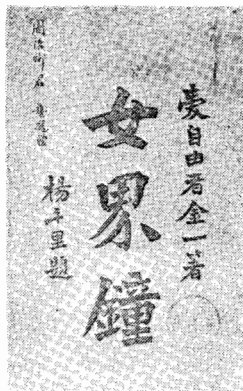 愛自由者金一著
女界鐘
楊千里題